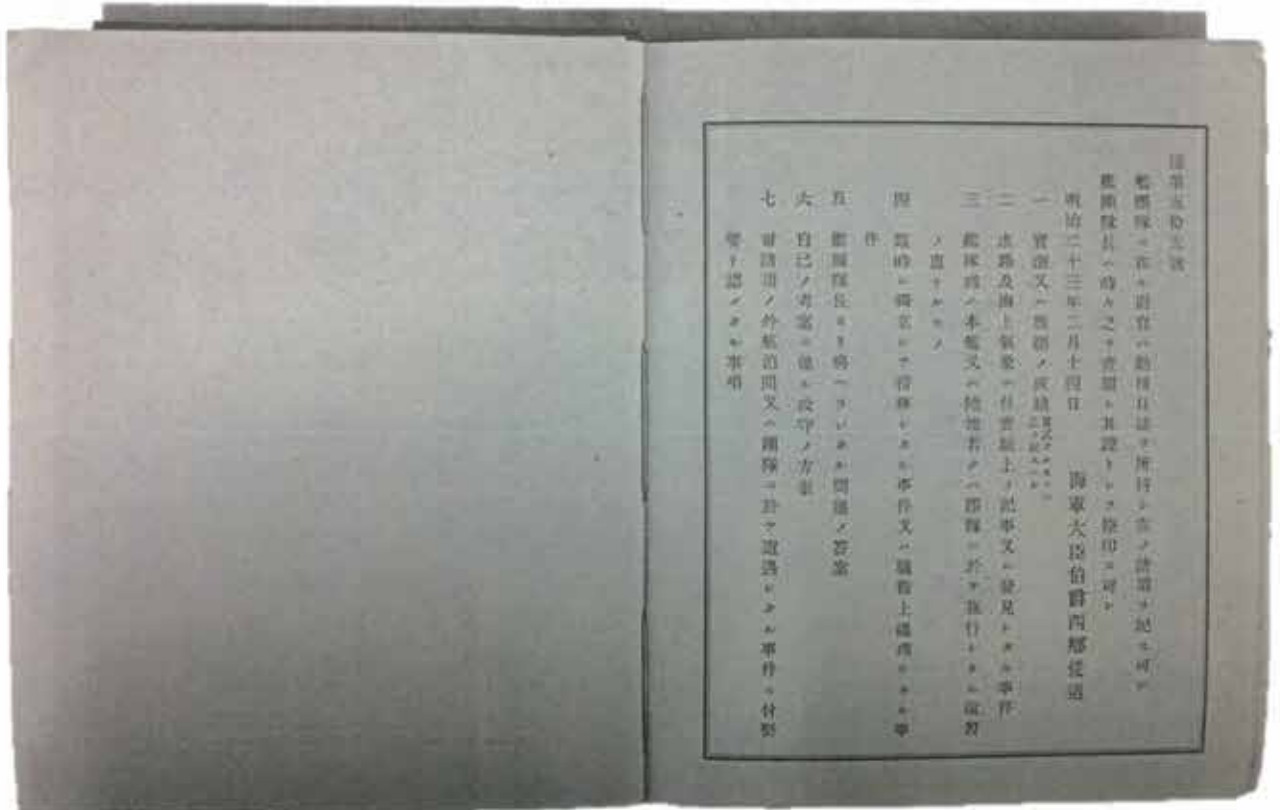 艦團隊ニ在ル尉官ハ勤務日誌ヲ所持シ左ノ諸項ヲ記ス可シ
艦團隊長ハ時々之ヲ査閲シ其證トシテ捺印ス可シ
明治二十三年二月十四日
海軍大臣伯爵西郷従道
一 實
二 水路及海上氣象ノ件實驗上ノ記事又ハ發見シタル事件
三 艦隊或ハ本艦又ハ陸地若クハ團隊ニ於テ施行シタル演習
ノ重ナルモノ
四 臨時ニ獨立シテ指揮シタル事件又ハ職務上處理シタル事
件
五 艦團隊長ヨリ與ヘラレタル問題ノ答案
六 自己ノ考案ニ係ル攻守ノ方案
七 前諸項ノ外航泊間又ハ團隊ニ於テ遭遇シタル事件ニ付緊
要ト認メタル事項